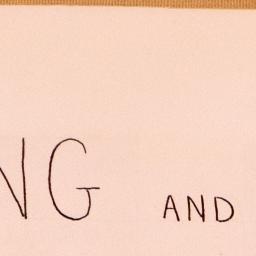 NG AND